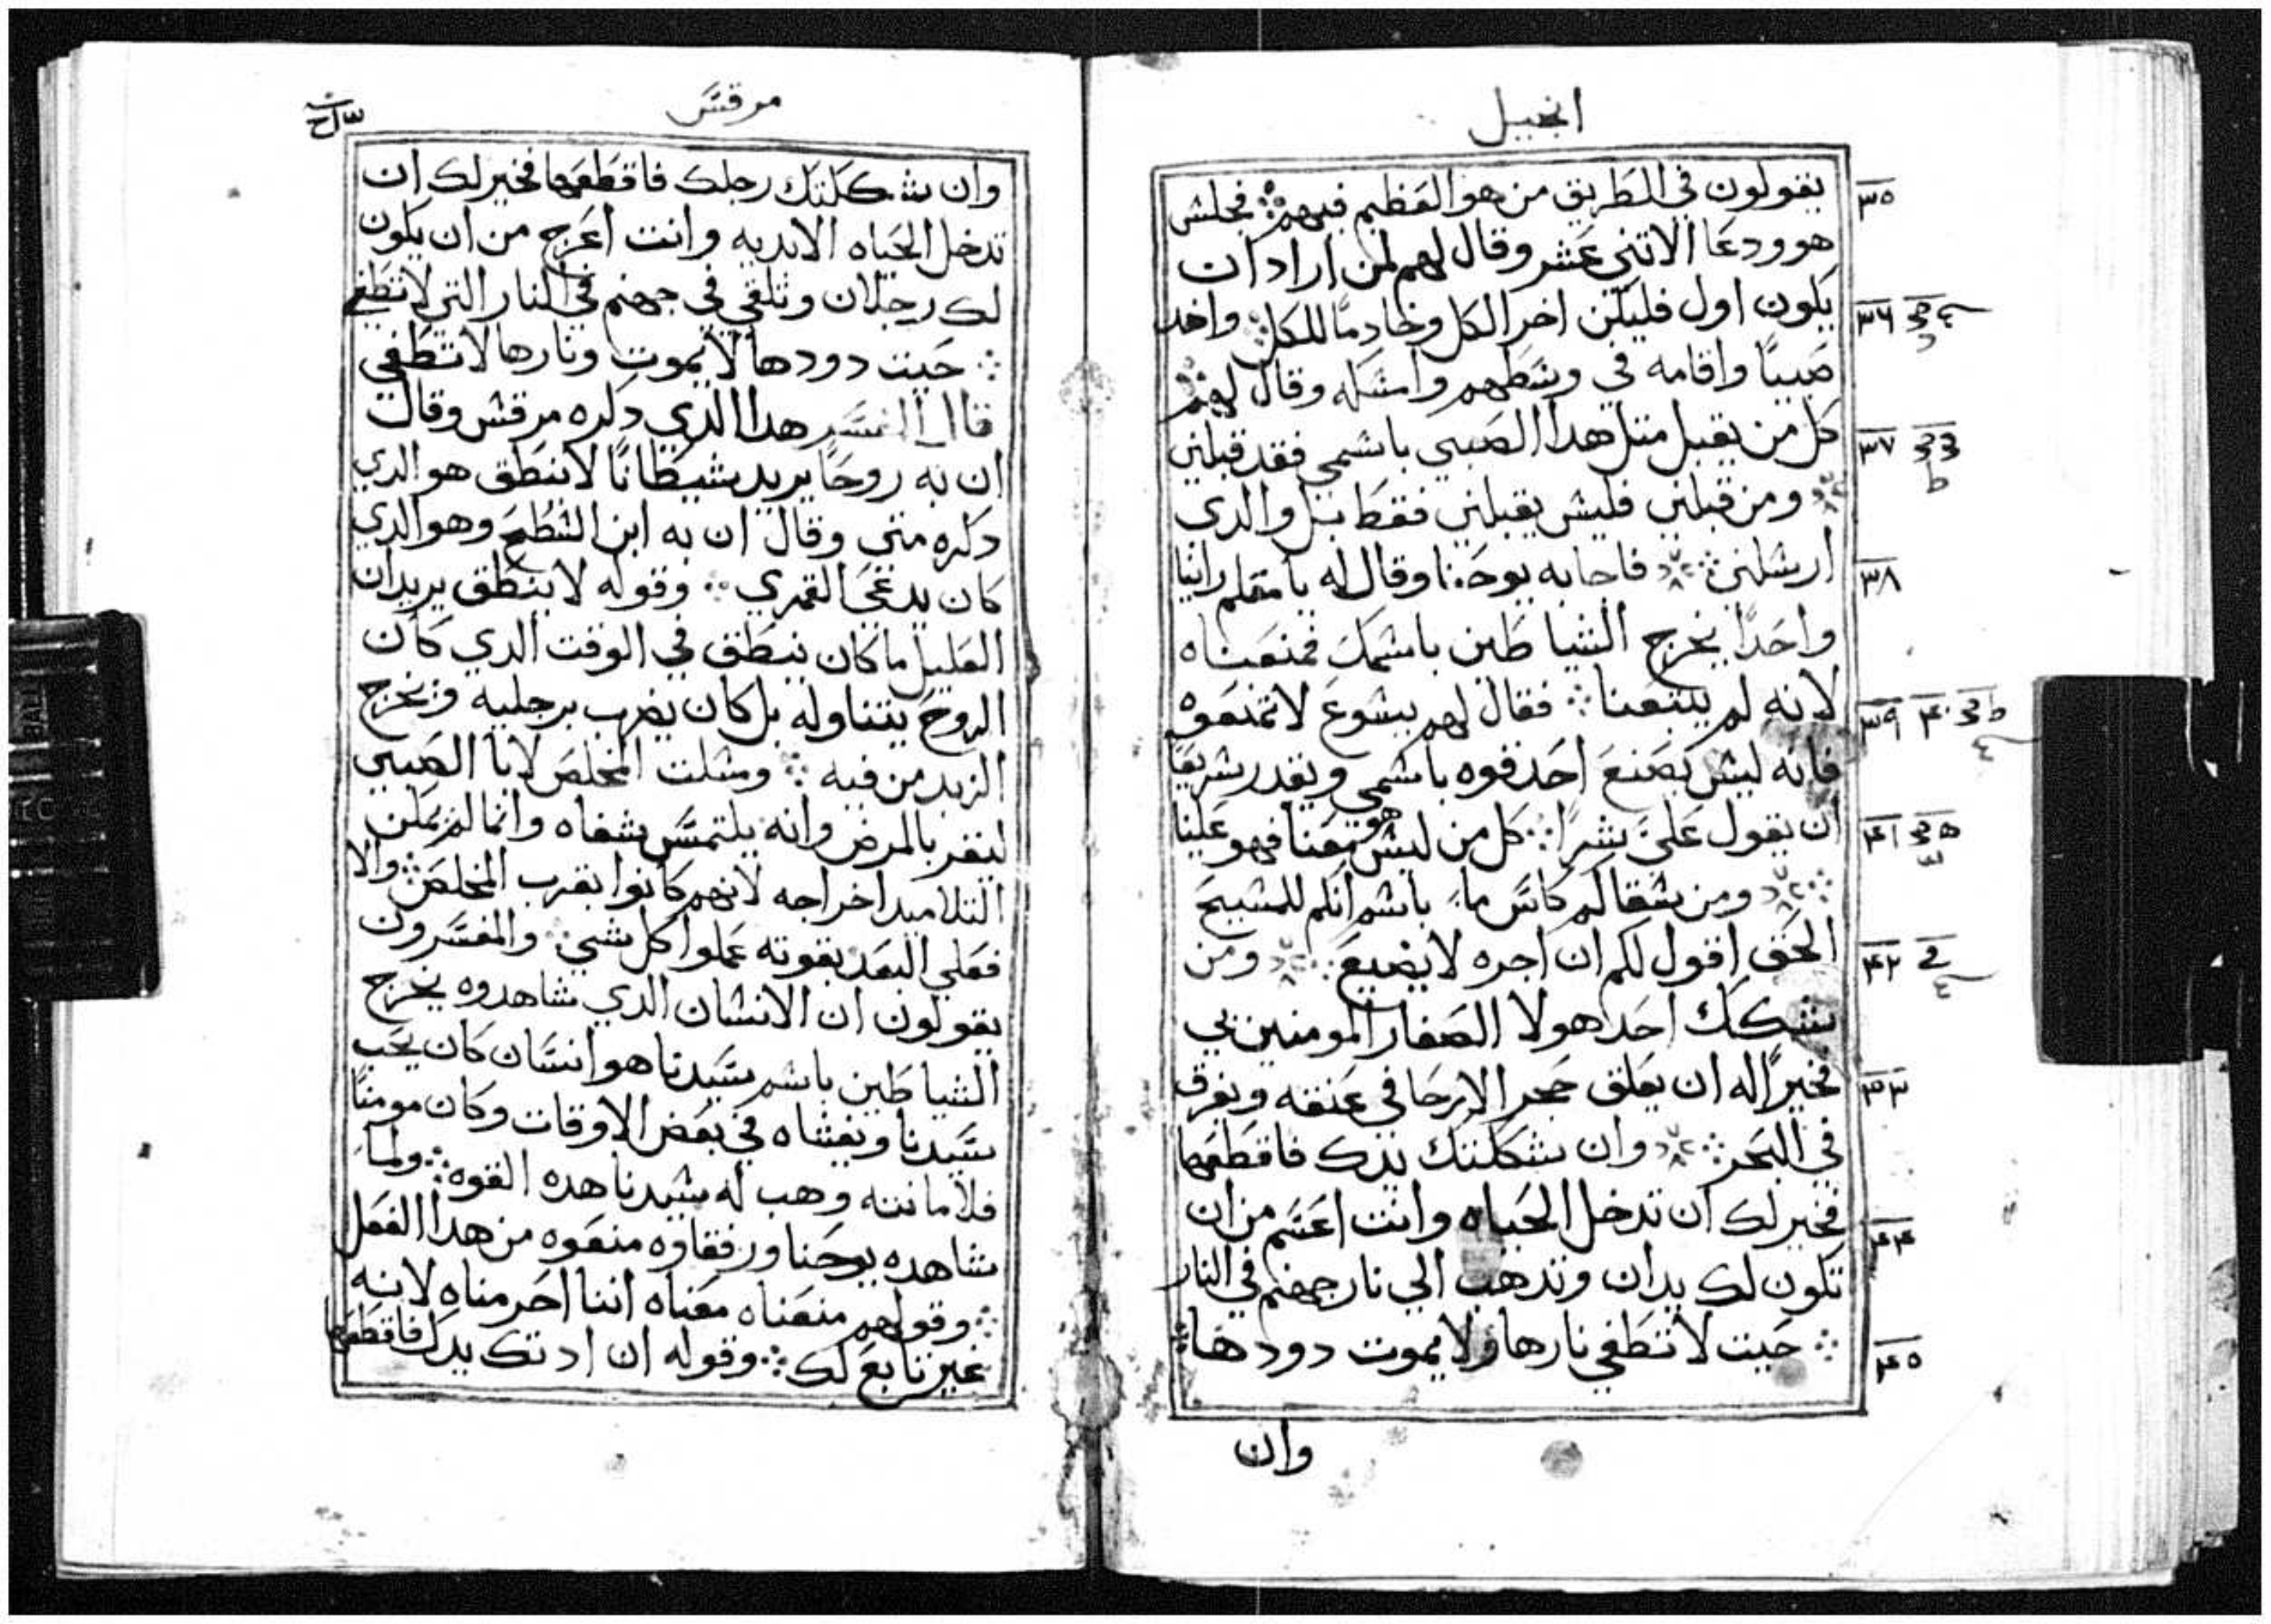 انجيل
يقولون في الطريق من هو العظيم فيهم ⁘ فجلس
هو ودعا الاتني عشر وقال لهم لمن اراد ان
يكون اول فليكن اخر الكل وخادمًا للكل واخد
صبيًا واقامه في وسطهم وامسكه وقال لهم
كل من يقبل متل هدا الصبي باسمي فقد قبلني
ومن قبلني فليس يقبلني فقط بل والدي
ارسلني ⁘ فاجابه يوحنا وقال له يا معلم راينا
واحدًا يخرج الشياطين باسمك فمنعناه
لانه لم يتبعنا ⁘ فقال لهم يسوع لا تمنعوه
فانه ليس يصنع احد قوه باسمي ويقدر سريعًا
ان يقول علي شرًا ⁘ كل من ليس هو معنا فهو علينا
ومن سقاكم كاس ما باسم انكم للمسيح
الحق اقول لكم ان اجره لا يضيع ⁘ ومن
شكك احد هولا الصغار المومنين بي
فخيرًا له ان يعلق حجر الارحا في عنقه ويغرق
في البحر ⁘ وان شككتك يدك فاقطعها
فخير لك ان تدخل الحياه وانت اعسم من ان
تكون لك يدان وتدهب الي نار جهنم في النار
⁘ حيت لا تطفي نارها ولا يموت دودها ⁘
وان
٣٥
٣٦
٣٧
٣٨
٣٩ ٤٠
٤١
٤٢
٤٣
٤٤
٤٥
مرقس
وان شككتك رجلك فاقطعها فخير لك ان
تدخل الحياه الابديه وانت اعرج من ان يكون
لك رجلان وتلقي في جهنم في النار التي لا تطفي
⁘ حيت دودها لا يموت ونارها لا تطفي
قال المفسر هدا الدي دكره مرقس وقال
ان به روحًا يريد شيطانًا لا ينطق هو الدي
دكره متي وقال ان به ابن السطح وهو الدي
كان يدعي القمري ⁘ وقوله لا ينطق يريد ان
العليل ما كان ينطق في الوقت الدي كان
الروح يتناوله بل كان يضرب برجليه ويخرج
الزبد من فيه ⁘ ومسلت المخلص لابا الصبي
ليقر بالمرض وانه يلتمس شفاه وانما لم يمكن
التلاميد اخراجه لانهم كانوا بقرب المخلص ⁘ والا
فعلي البعد بقوته عملوا كل شي ⁘ والمفسرون
يقولون ان الانسان الدي شاهدوه يخرج
الشياطين باسم سيدنا هو انسان كان يحب
سيدنا ويغشاه في بعض الاوقات وكان مومنًا
فلامانته وهب له سيدنا هده القوه ⁘ ولما
شاهده يوحنا ورفقاوه منعوه من هدا الفعل
⁘ وقولهم منعناه معناه اننا احرمناه لانه
غير تابع لك ⁘ وقوله ان ادتك يدك فاقطعها